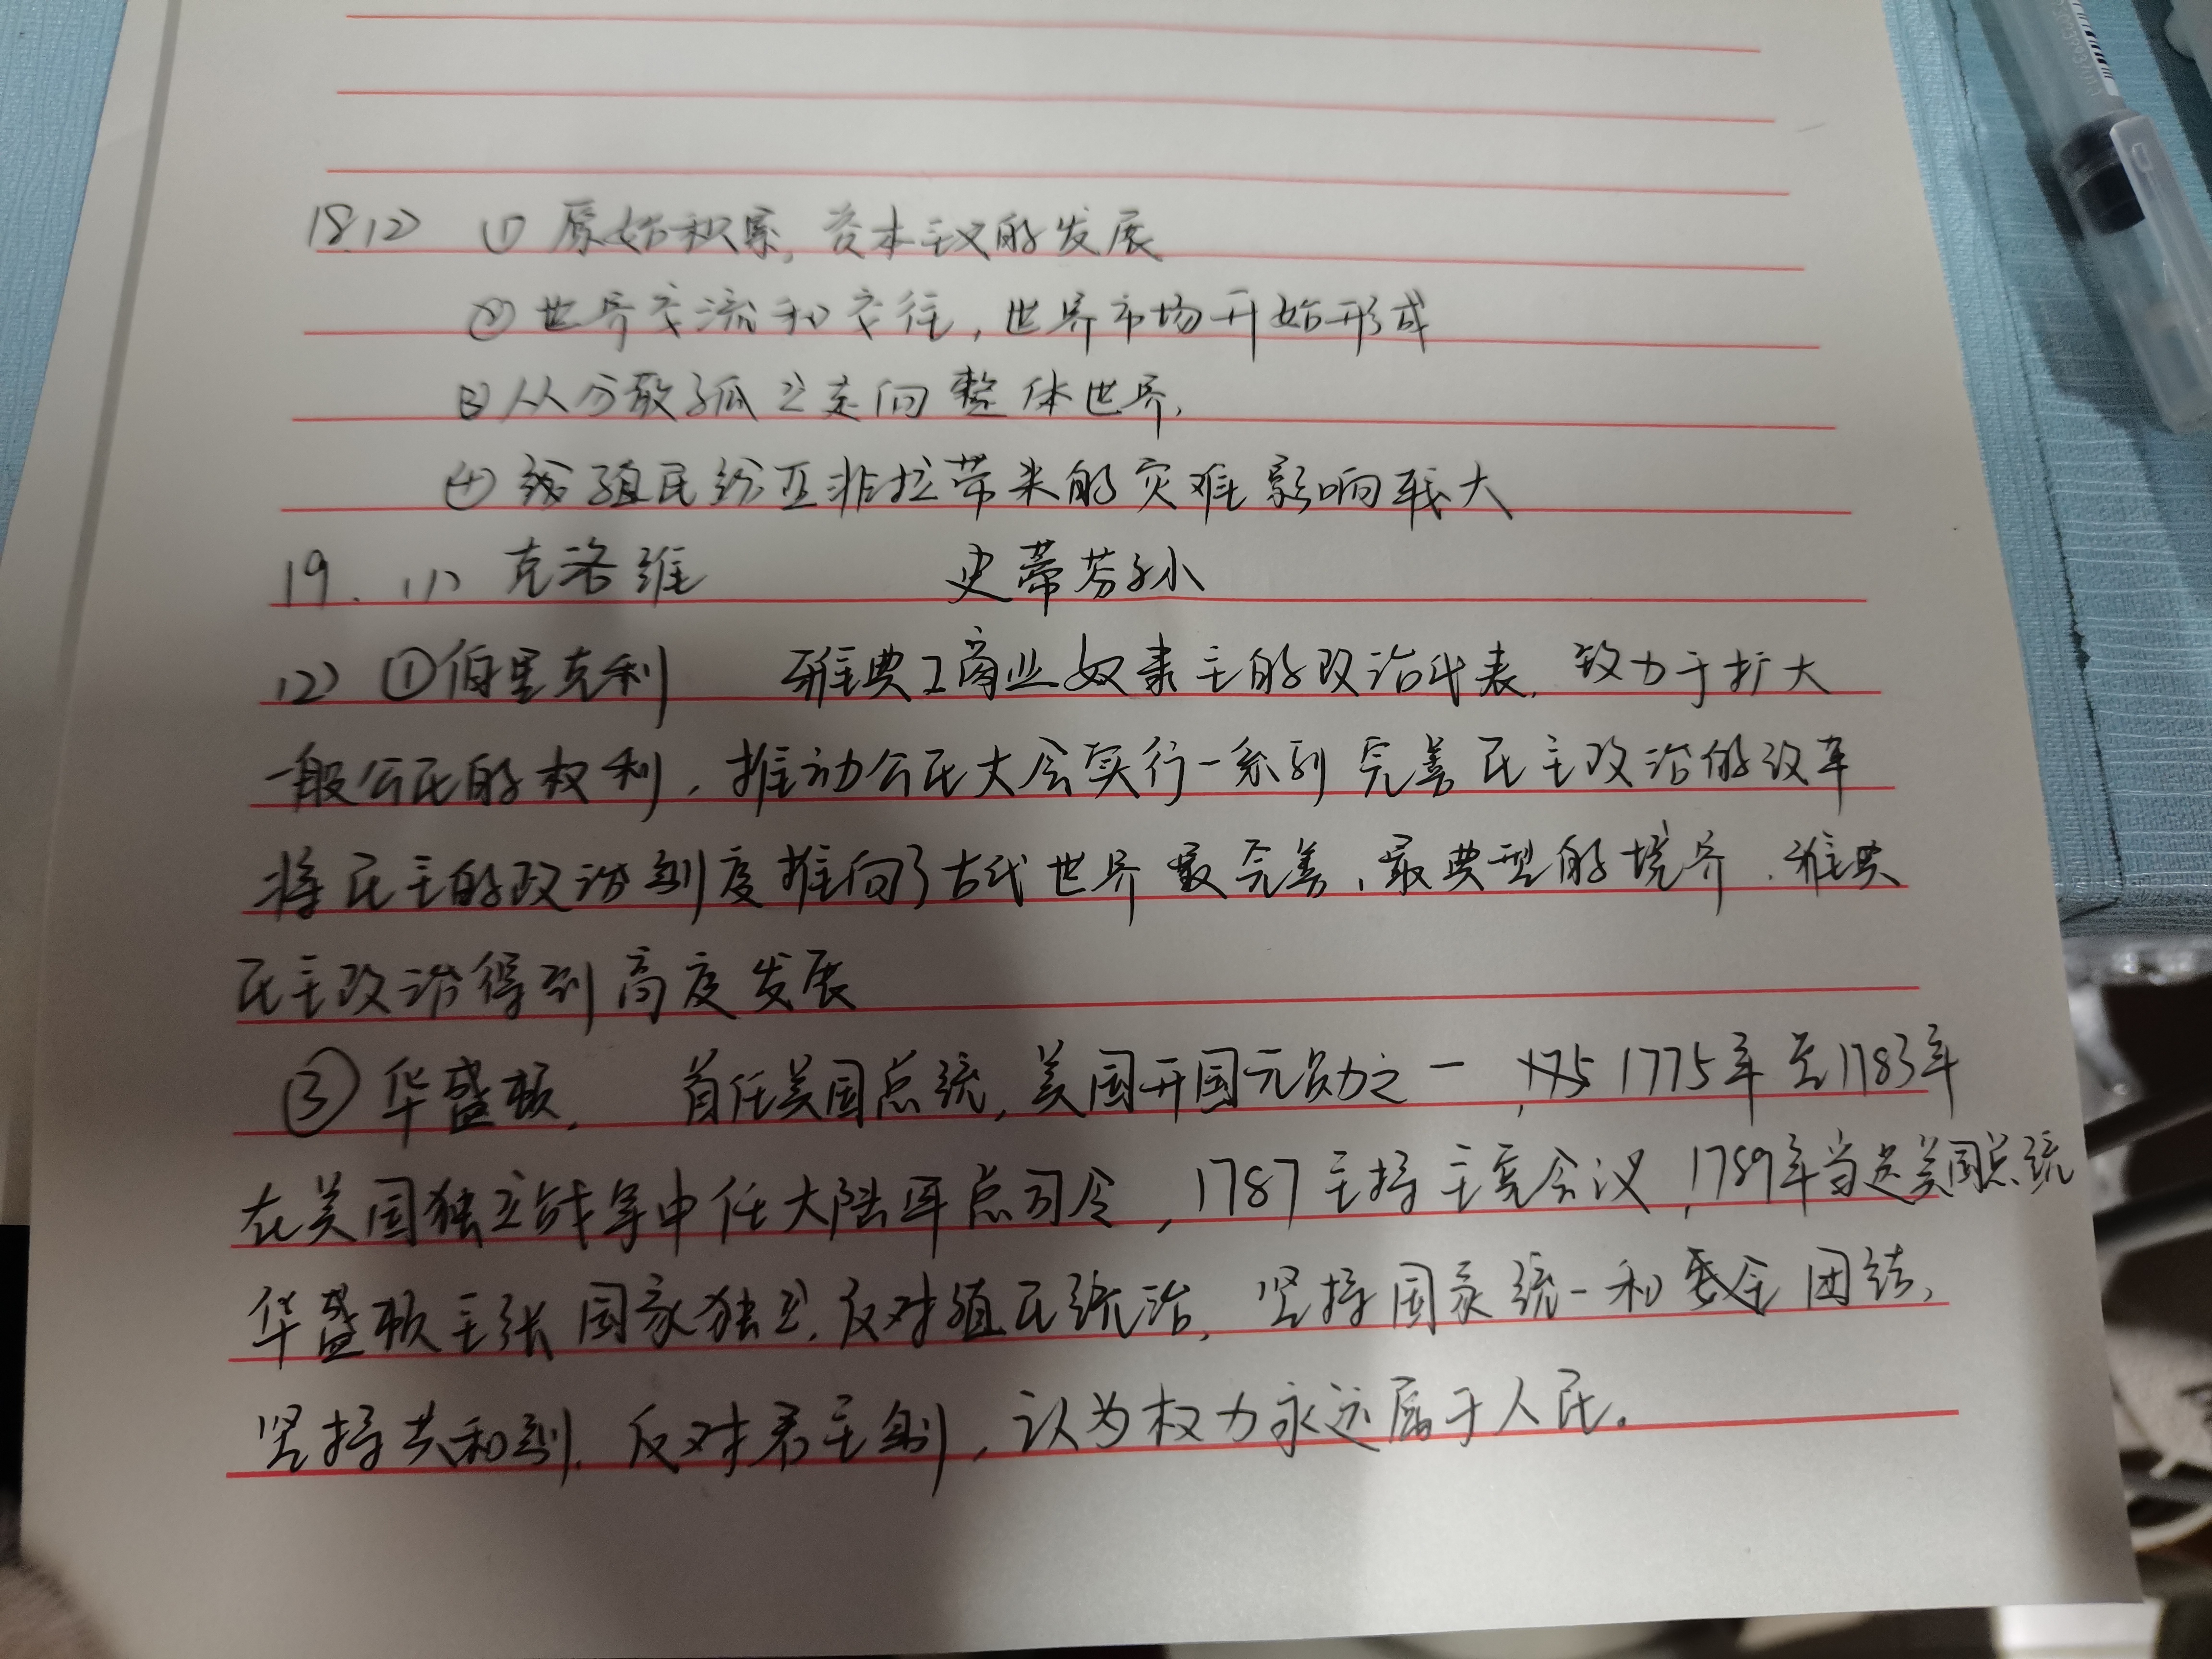 18.(2) ① 原始积累, 资本主义的发展
② 世界交流和交往, 世界市场开始形成
③ 从分散孤立走向整体世界,
④ 给殖民给亚非拉带来的灾难影响较大
19. (1) 克洛维 史蒂芬孙
(2) ①伯里克利 雅典工商业奴隶主的政治代表, 致力于扩大
一般公民的权利, 推动公民大会实行一系列完善民主政治的改革
将民主的政治制度推向了古代世界最完善、最典型的境界, 雅典
民主政治得到高度发展
③ 华盛顿, 首任美国总统, 美国开国元勋之一, 1775年至1783年
在美国独立战争中任大陆军总司令, 1787主持主宪会议, 1789年当选美国总统
华盛顿主张国家独立, 反对殖民统治, 坚持国家统一和 团结,
坚持共和制, 反对君主制, 认为权力永远属于人民。